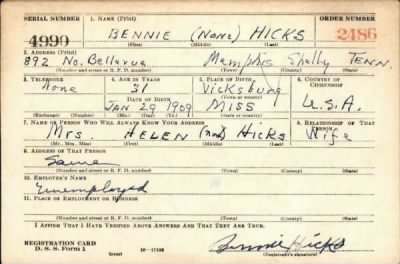 SERIAL NUMBER 1. NAME (Print) ORDER NUMBER
4999 BENNIE (None) HICKS 2486
(First) (Middle) (Last)
2. ADDRESS (Print)
892 No. Bellevue Memphis Shelby TENN.
(Number and street or R. F. D. number) (Town) (County) (State)
3. TELEPHONE 4. AGE IN YEARS 5. PLACE OF BIRTH 6. COUNTRY OF CITIZENSHIP
None 31 Vicksburg
DATE OF BIRTH (Town or county)
JAN 29 1909 MISS U.S.A.
(Mo.) (Day) (Yr.) (State or country)
7. NAME OF PERSON WHO WILL ALWAYS KNOW YOUR ADDRESS 8. RELATIONSHIP OF THAT PERSON
Mrs. HELEN (none) HICKS Wife
(Mr., Mrs., Miss) (First) (Middle) (Last)
9. ADDRESS OF THAT PERSON
Same
(Number and street or R. F. D. number) (Town) (County) (State)
10. EMPLOYER'S NAME
Unemployed
11. PLACE OF EMPLOYMENT OR BUSINESS
(Number and street or R. F. D. number) (Town) (County) (State)
I AFFIRM THAT I HAVE VERIFIED ABOVE ANSWERS AND THAT THEY ARE TRUE.
REGISTRATION CARD
D. S. S. Form 1 (over) 16—17105 Bennie Hicks